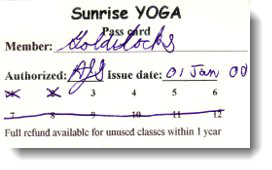 Sunrise YOGA
Pass card
Member: Goldilocks
Authorized: AJS Issue date: 01 Jan 00
1 2 3 4 5 6
7 8 9 10 11 12
Full refund available for unused classes within 1 year